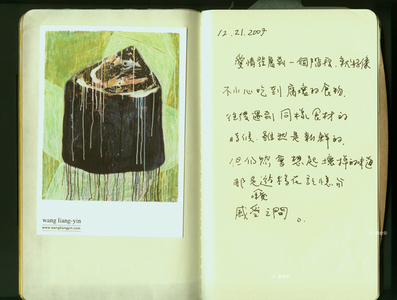 wang liang-yin
www.wangliangyin.com
12.21.2007
愛情發展到一個階段,就好像
不小心吃到腐壞的食物,
往後遇到同樣食材的
時候雖然是新鮮的,
但仍然會想起壞掉的味道
那是遊移在記憶與
感受之間。